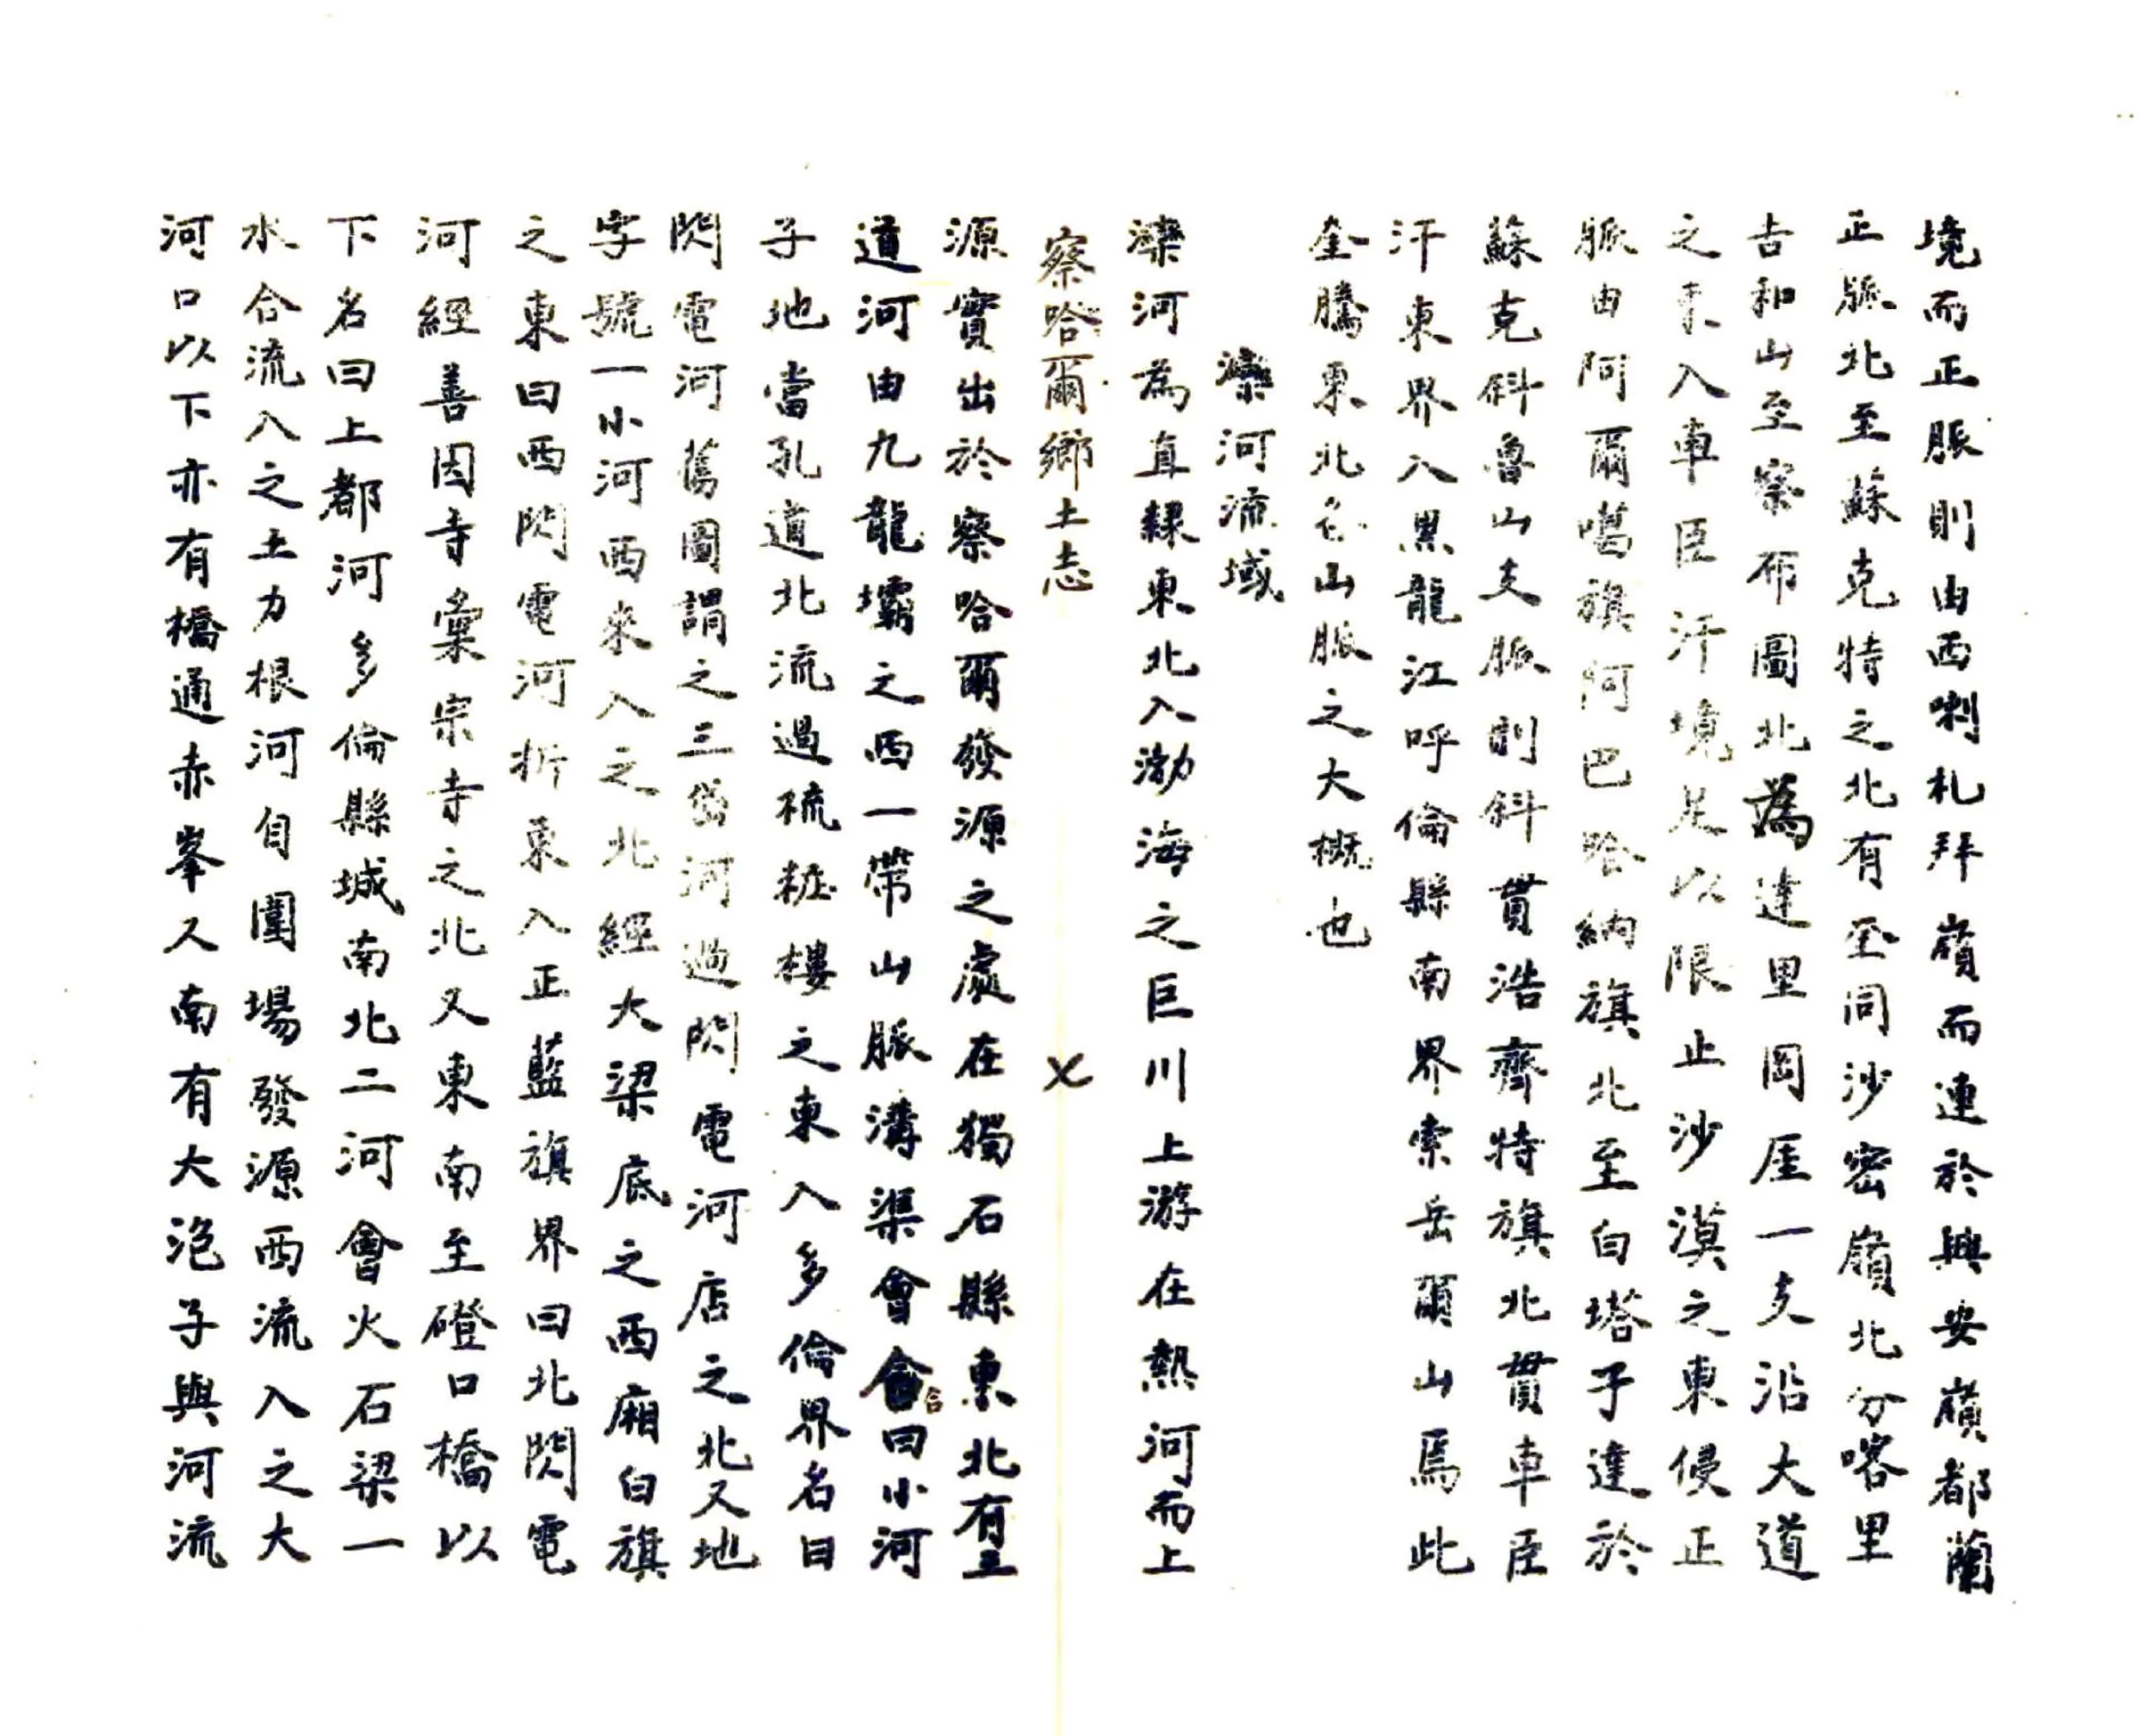 境而正脈則由西喇札拜嶺而連於興安嶺都蘭
正脈北至蘇克特之北有至同沙密嶺北分喀里
吉和山至察布圖北為達里岡厓一支沿大道
之東入車臣汗境足以限止沙漠之東侵正
脈由阿爾噶旗阿巴哈納旗北至白塔子達於
蘇克斜魯山支脈則斜貫浩齊特旗北貫車臣
汗東界入黑龍江呼倫縣南界索岳爾山焉此
全騰東北各山脈之大概也
灤河流域
灤河為直隸東北入渤海之巨川上游在熱河而上
察哈爾鄉土志
源實出於察哈爾發源之處在獨石縣東北有三
道河由九龍壩之西一帶山脈溝渠會合曰小河
子地當孔道北流過梳粧樓之東入多倫界名曰
閃電河舊圖謂之三岔河過閃電河店之北又地
字號一小河西來入之北經大梁底之西廂白旗
之東曰西閃電河折東入正藍旗界曰北閃電
河經善因寺彙宗寺之北又東南至磴口橋以
下名曰上都河多倫縣城南北二河會火石梁一
水合流入之土力根河自圍場發源西流入之大
河口以下亦有橋通赤峯又南有大泡子與河流